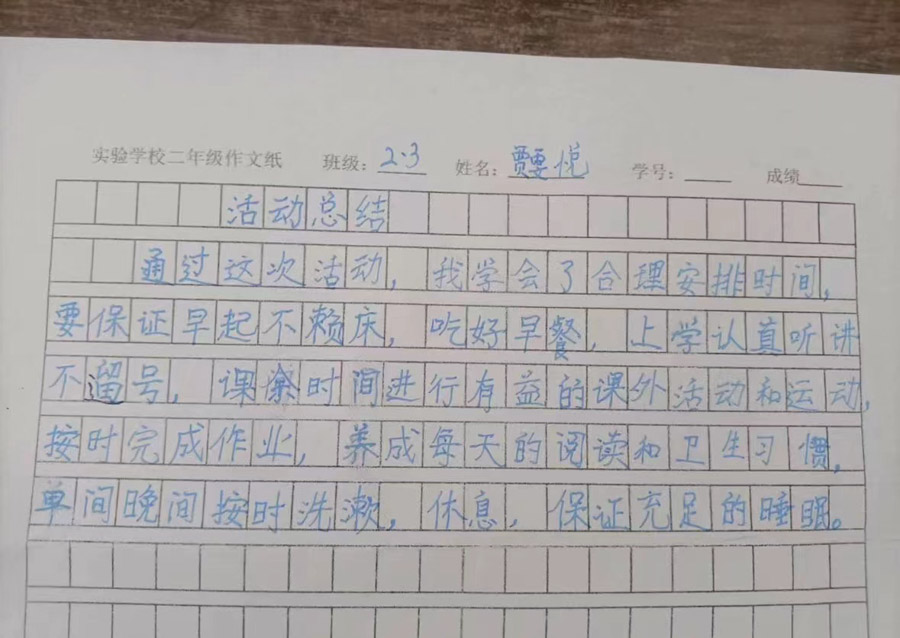 实验学校二年级作文纸 班级: 2·3 姓名: 贾雯悦 学号: 成绩
活动总结
通过这次活动,我学会了合理安排时间,
要保证早起不赖庆,吃好早餐,上学认真听讲
不遛号,课余时间进行有益的课外活动和运动,
按时完成作业,养成每天的阅读和卫生习惯,
单间晚间按时洗漱,休息,保证充足的睡眠。